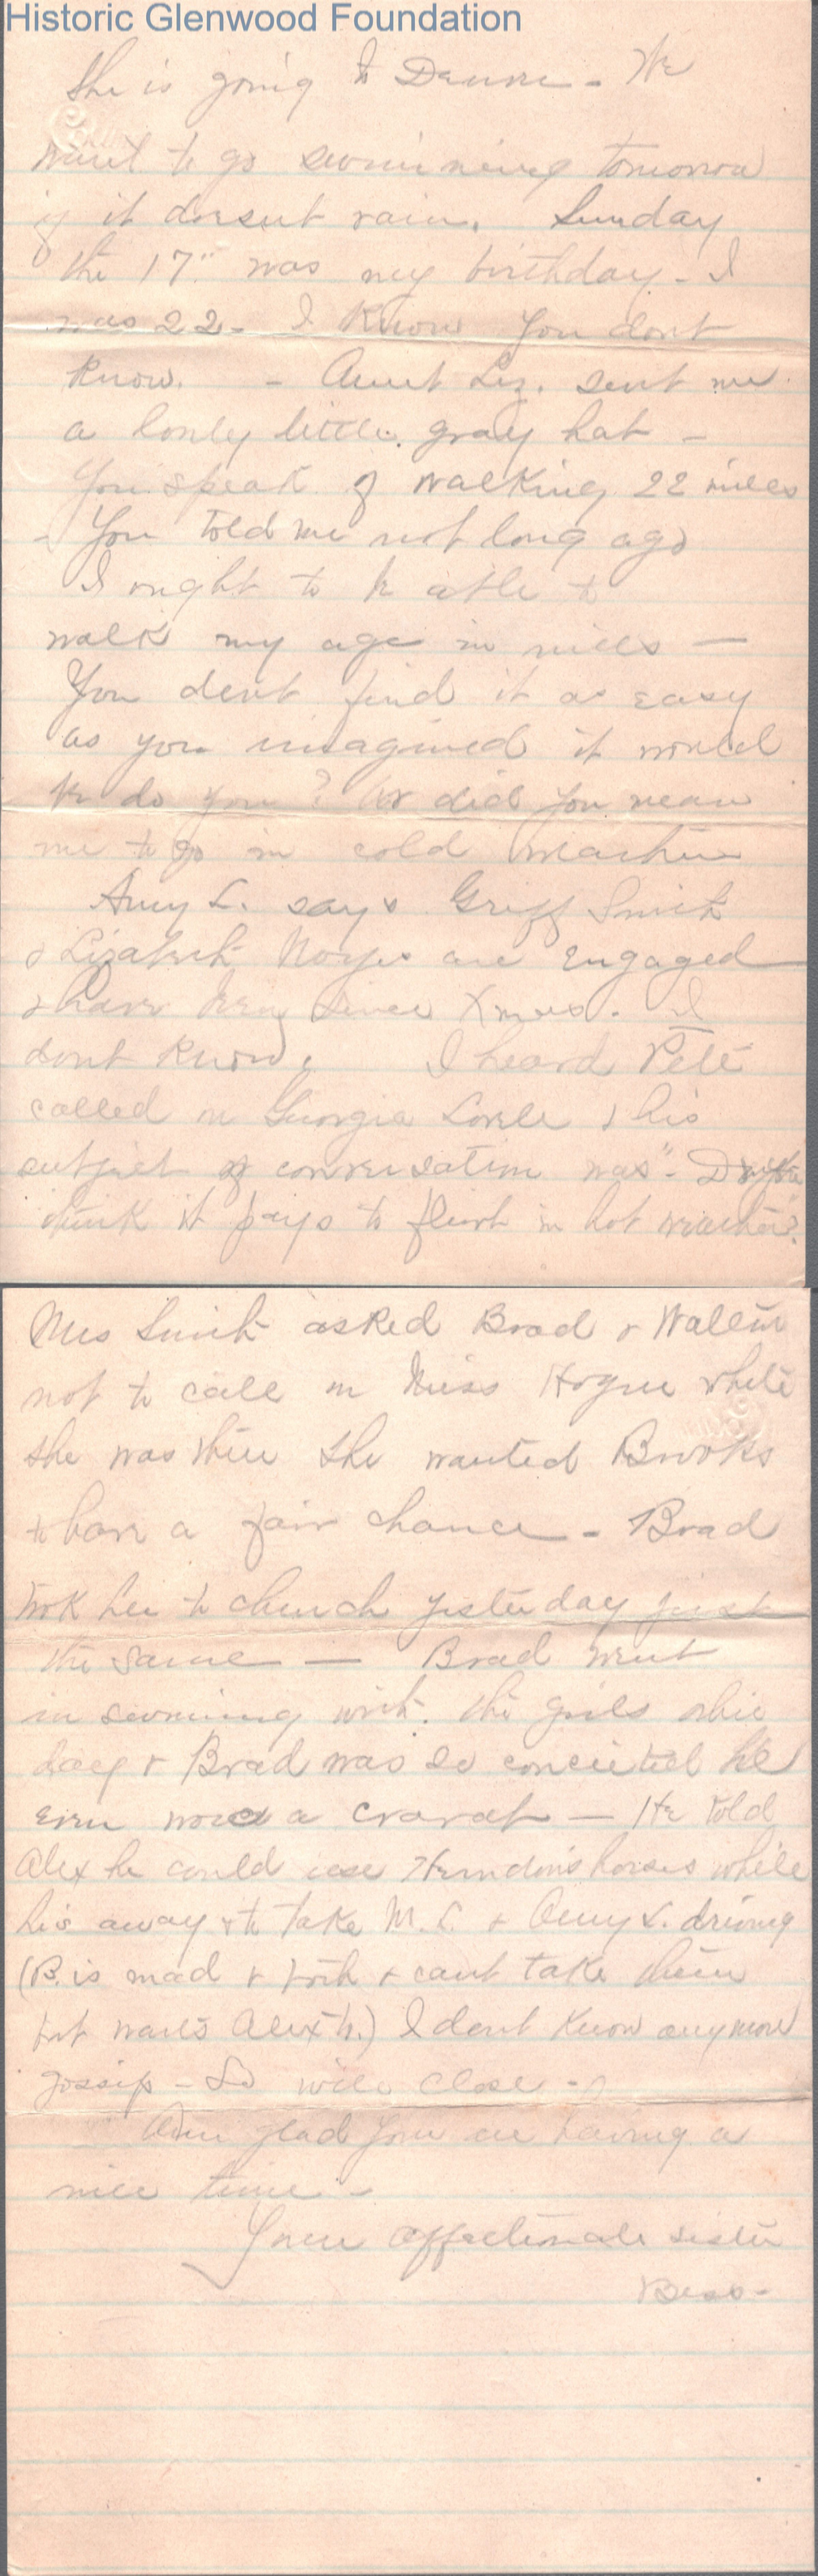 Historic Glenwood Foundation
She is going to - We
want to go swimming tomorrow
if it doesnt rain. Sunday
the 17" was my birthday - I
was 22 - I know you dont
know. - Aunt Liz. sent me
a lovely little gray hat -
You speak of walking 22 miles
- You told me not long ago
I ought to be able to
walk my age in miles —
You dont find it as easy
as you imagined it would
be do you? Or did you mean
me to go in cold weather
Amy L. says Griff Smith
& Lizabeth Noyes are engaged
& have been since Xmas. I
dont know. I heard Pete
called on Georgia & his
subject of conversation was "- Do you
think it pays to flirt in hot weather?
Mrs Smith asked Brad & Walter
not to call on Miss Hogue while
she was there she wanted Brooks
to have a fair chance - Brad
took her to church yesterday just
the same — Brad went
in swimming with the girls othe
day & Brad was so concieted he
even wore a cravat — He told
Alex he could use Herndon's horses while
his away & to take M. L. & Amy L. driving
(B. is mad & both & cant take them
but wants Alex to.) I dont know anymore
gossip - So will close -
Am glad you are having a
nice time -
Your affectionate sister
Bess -